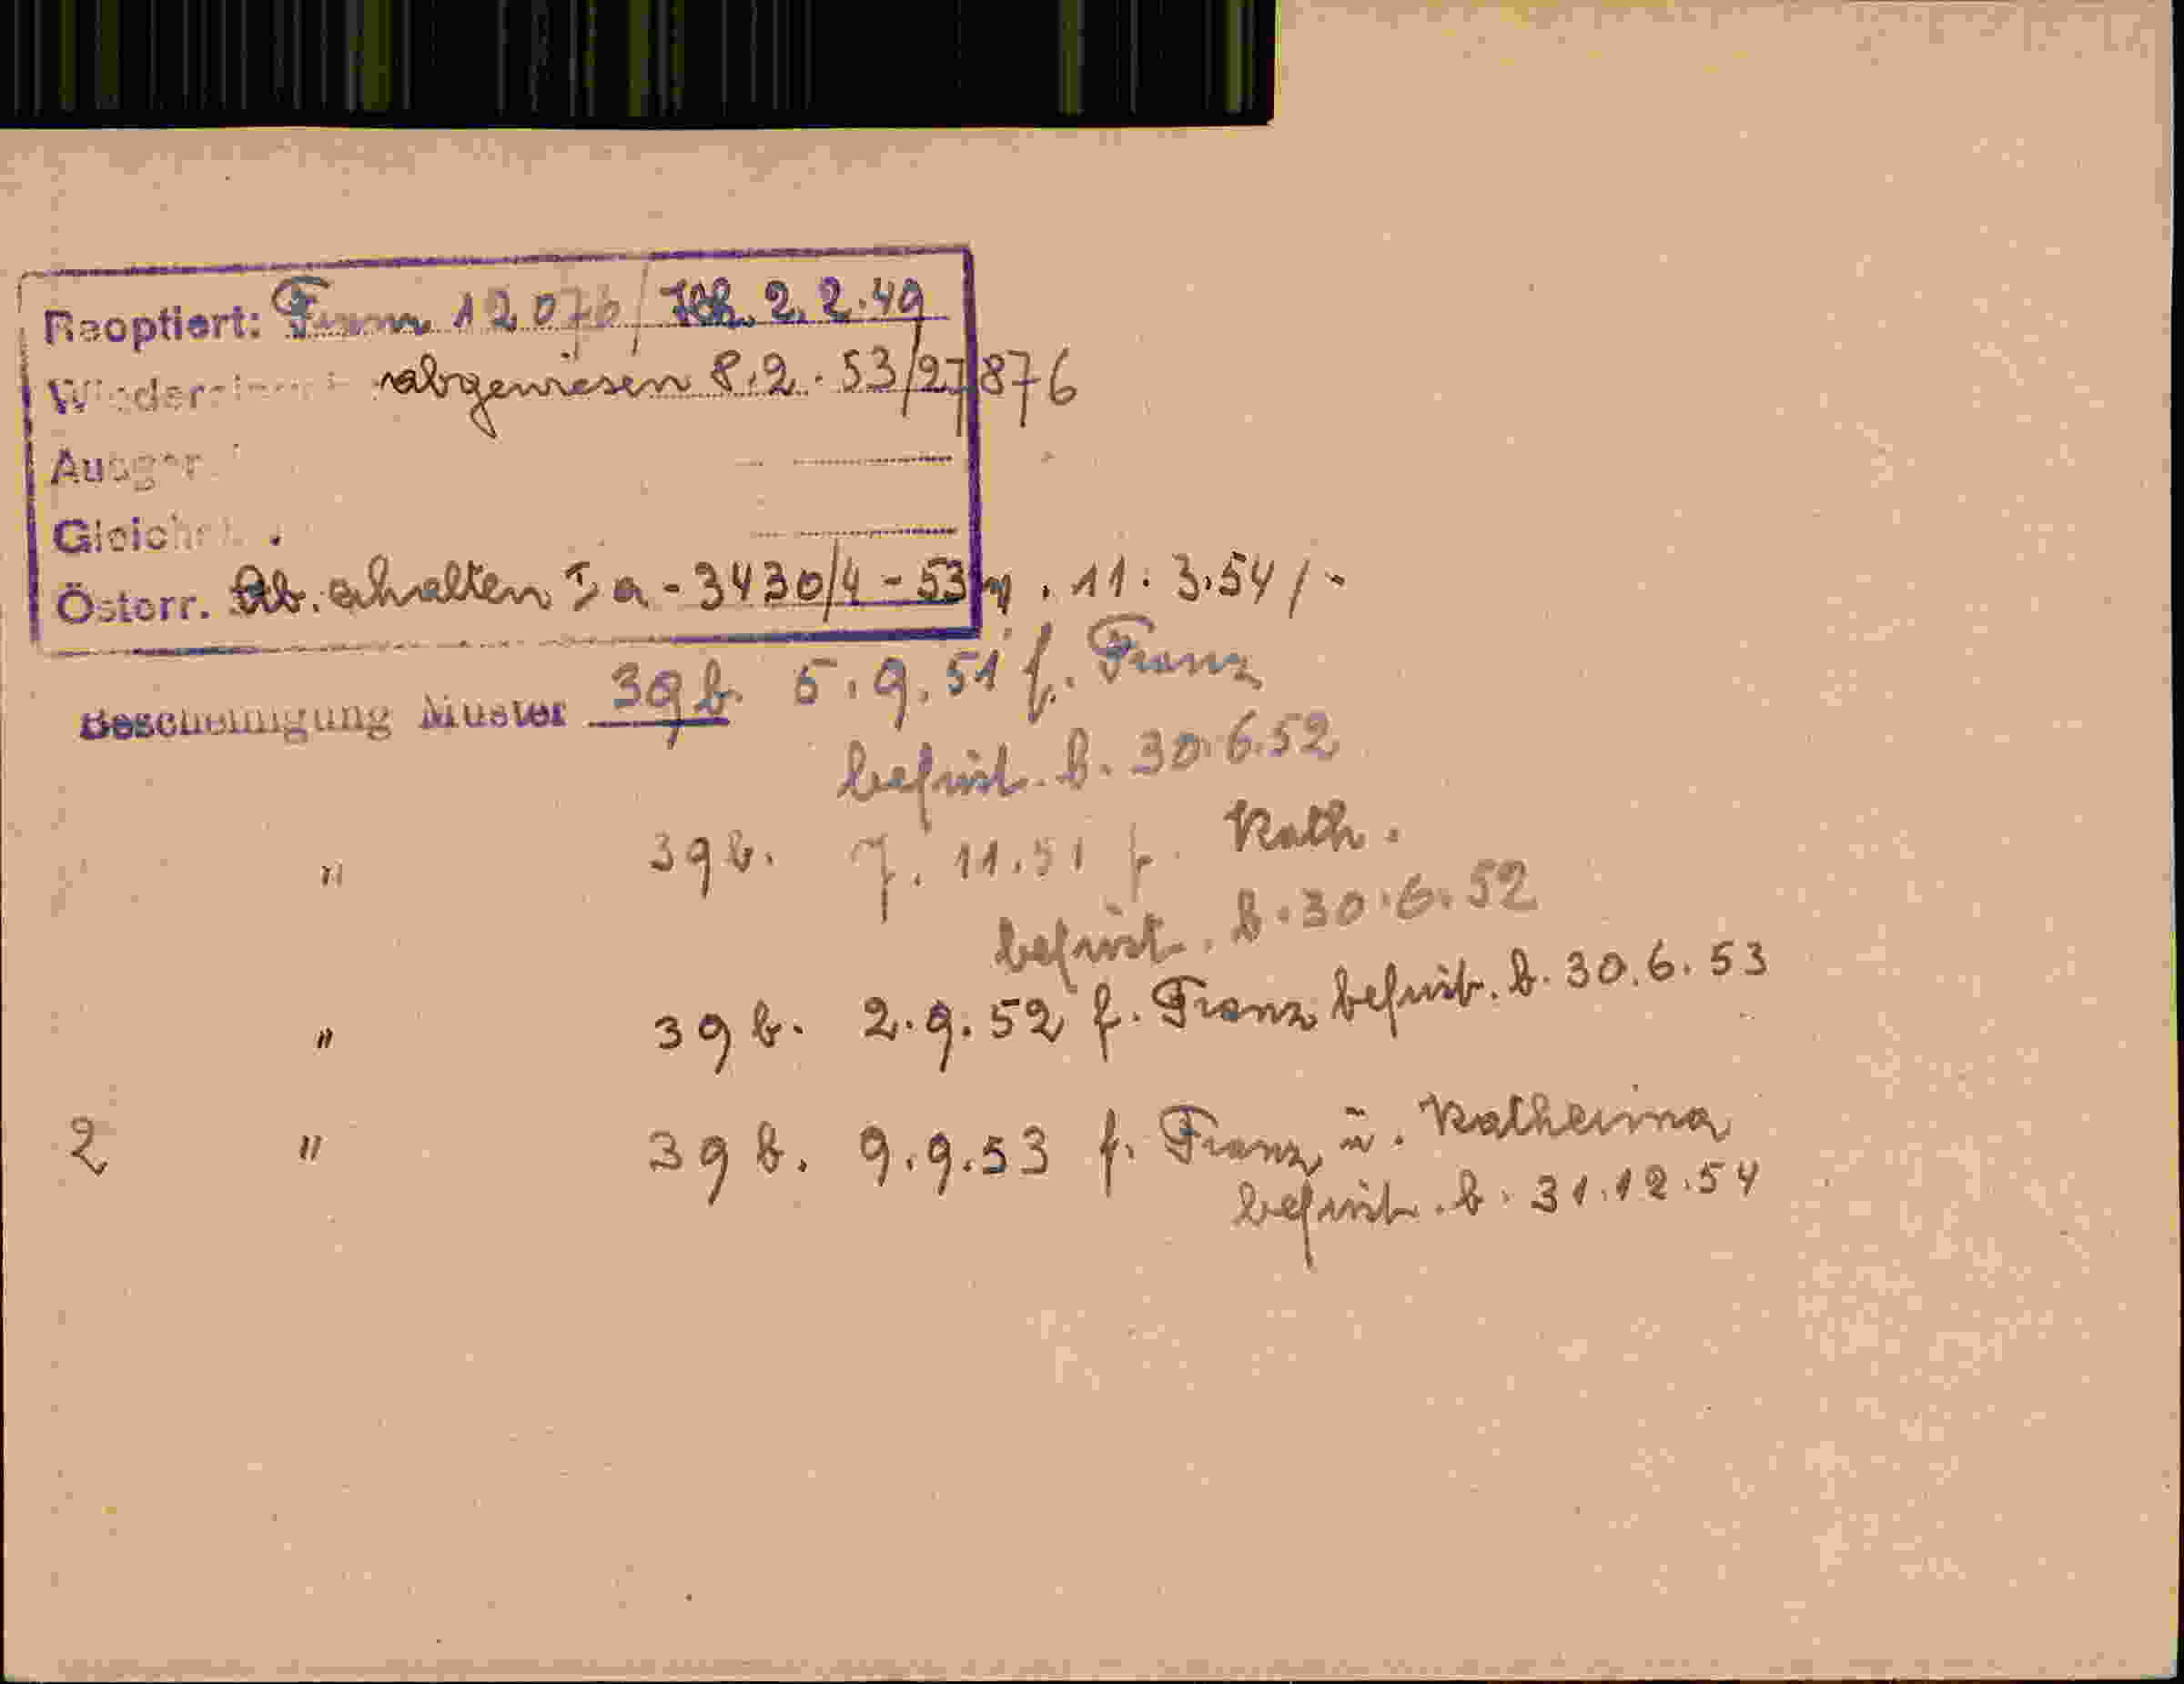 Reoptiert: Franz 12076 / Kth. 2.2.49
abgewiesen 8.2.53/27876
Österr. Stb. erhalten I a - 3430/4 - 53 v. 11.3.54 /-
Bescheinigung Muster 39 b. 5.9.51 f. Franz
befrist. b. 30.6.52
" 39 b. 7.11.51 f. Kath.
befrist. b. 30.6.52
" 39 b. 2.9.52 f. Franz befrist. b. 30.6.53
2 " 39 b. 9.9.53 f. Franz u. Katherina
befrist. b. 31.12.54